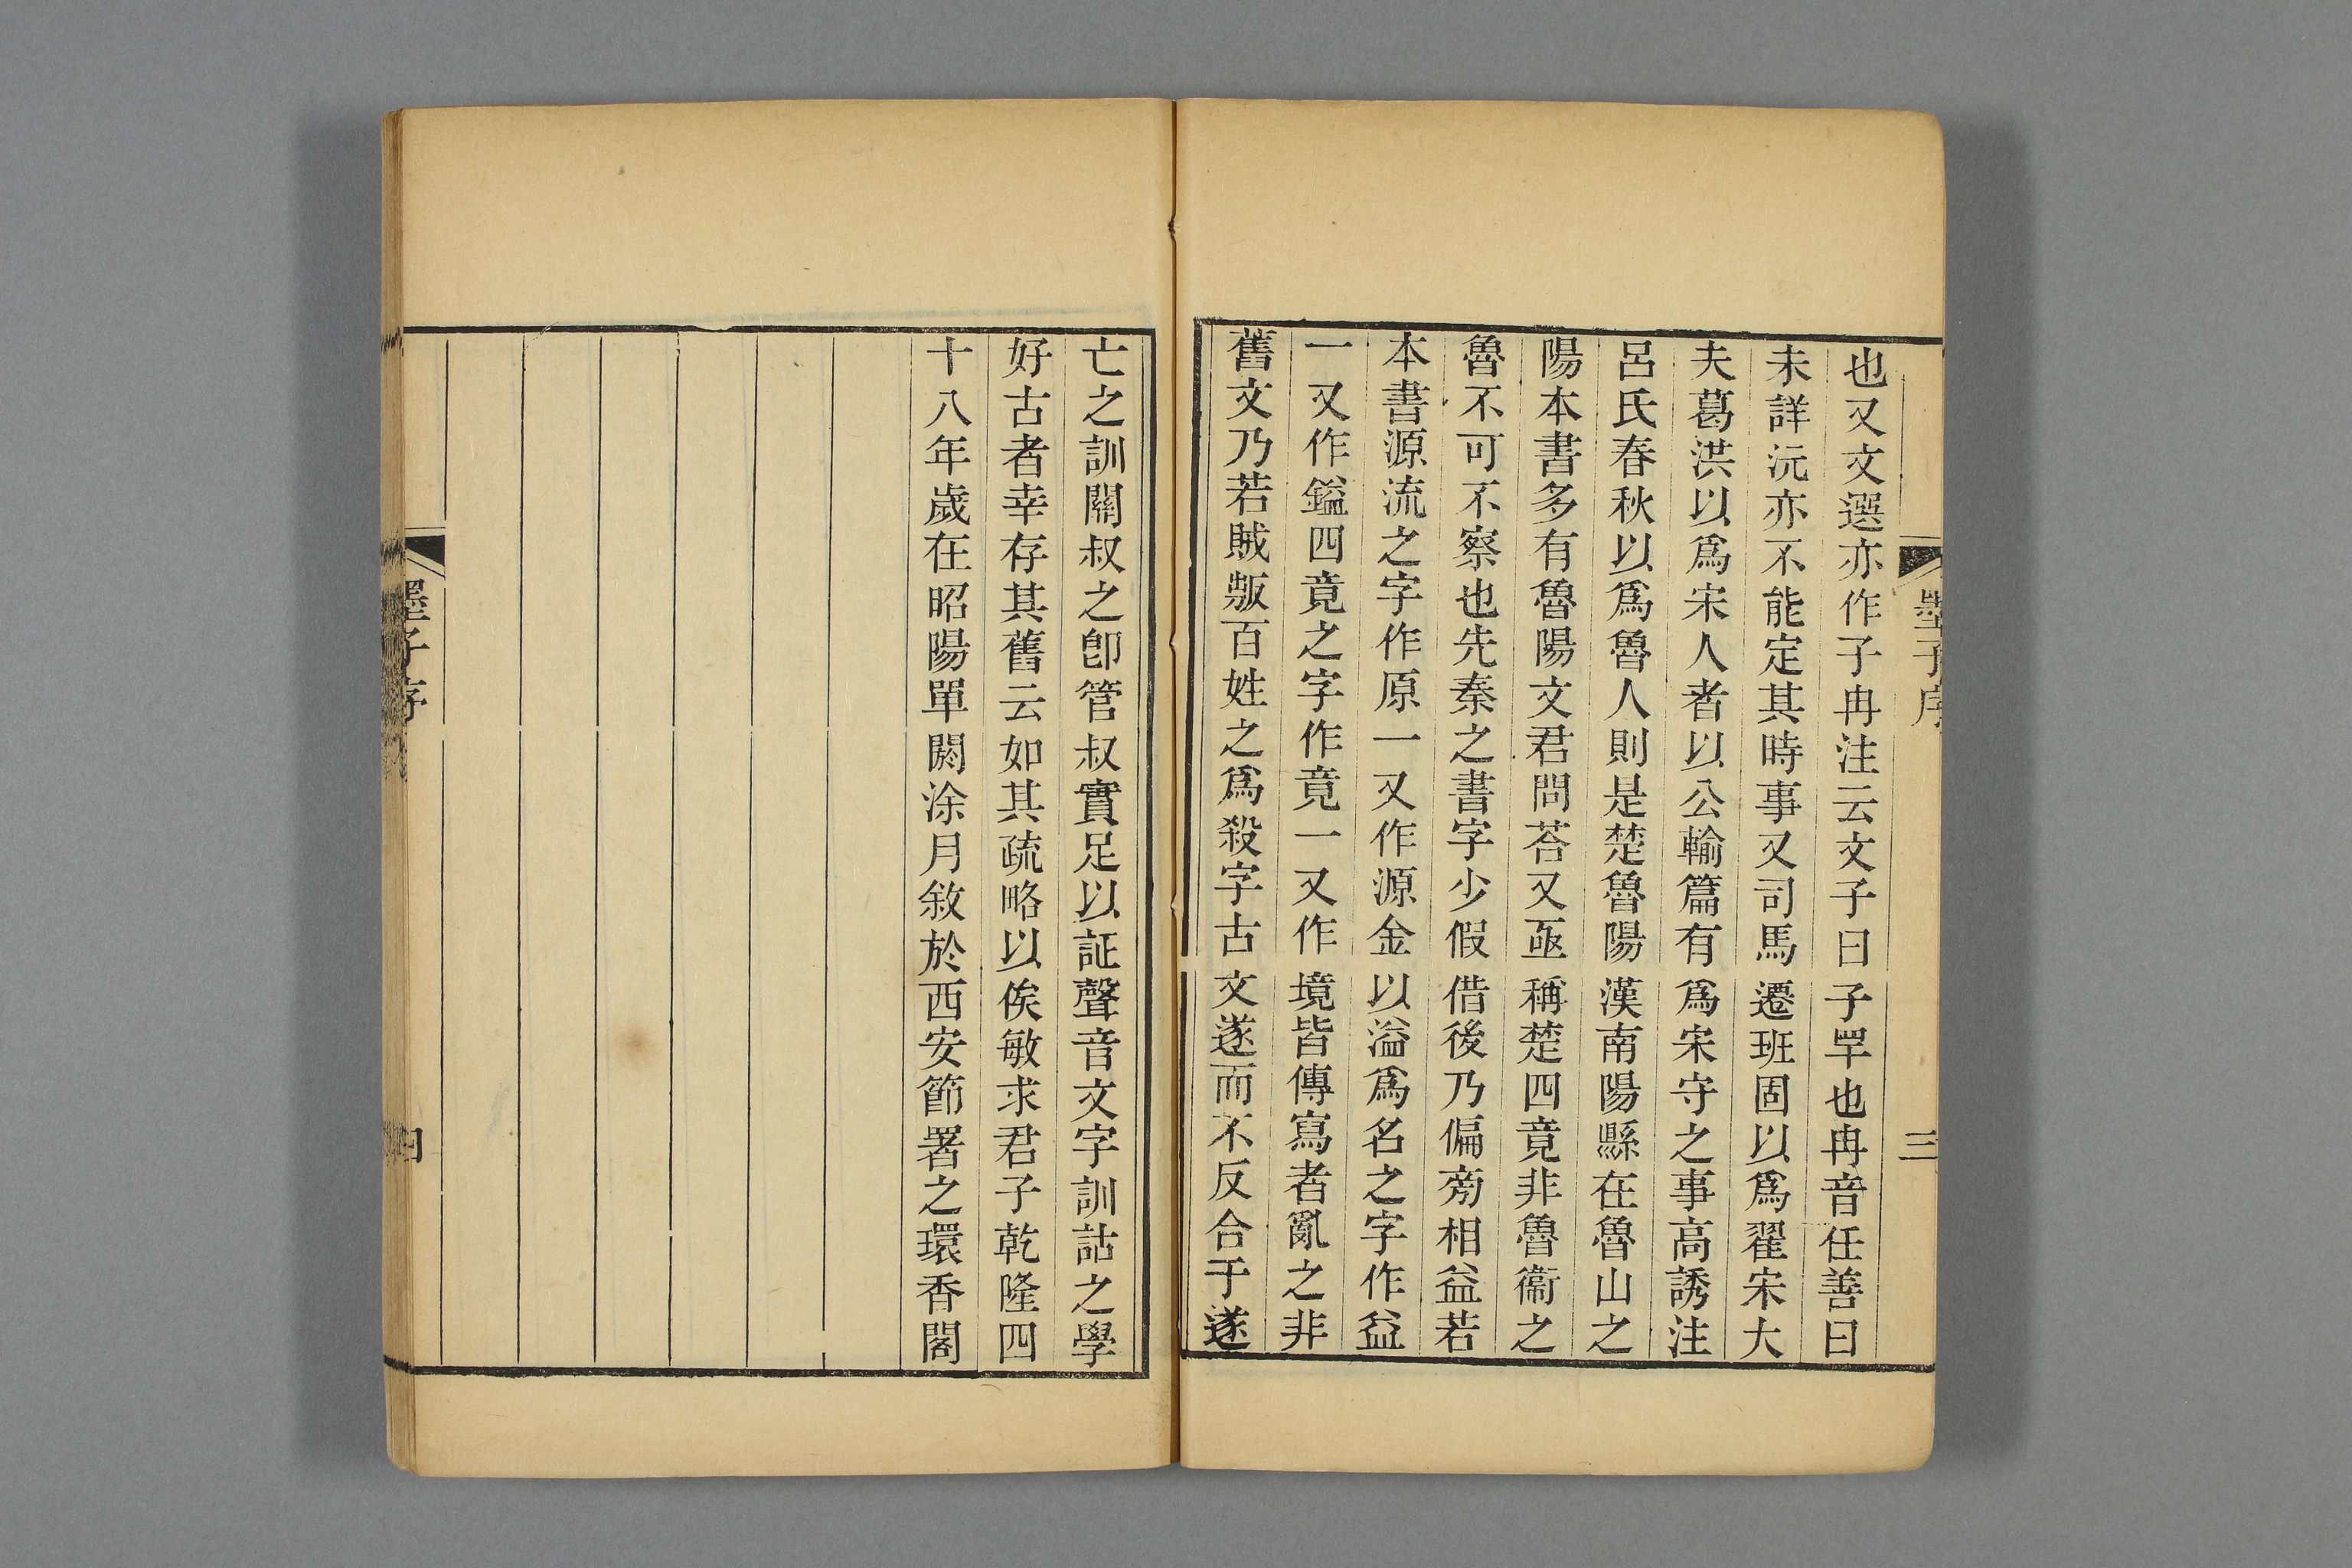 墨子序
三
也又文選亦作子冉注云文子曰子罕也冉音任善曰
未詳沅亦不能定其時事又司馬遷班固以爲翟宋大
夫葛洪以爲宋人者以公輸篇有爲宋守之事高誘注
呂氏春秋以爲魯人則是楚魯陽漢南陽縣在魯山之
陽本書多有魯陽文君問荅又亟稱楚四竟非魯衞之
魯不可不察也先秦之書字少假借後乃偏旁相益若
本書源流之字作原一又作源金以溢爲名之字作益
一又作鎰四竟之字作竟一又作境皆傳寫者亂之非
舊文乃若賊㪔百姓之爲殺字古文遂而不反合于遂
亡之訓關叔之卽管叔實足以証聲音文字訓詁之學
好古者幸存其舊云如其疏略以俟敏求君子乾隆四
十八年歲在昭陽單閼涂月敘於西安節署之環香閣
墨子序
四